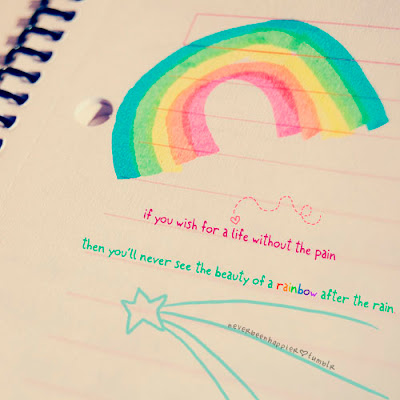 if you wish for a life without the pain
then you'll never see the beauty of a rainbow after the rain.
neverbeenhappier♡tumblr